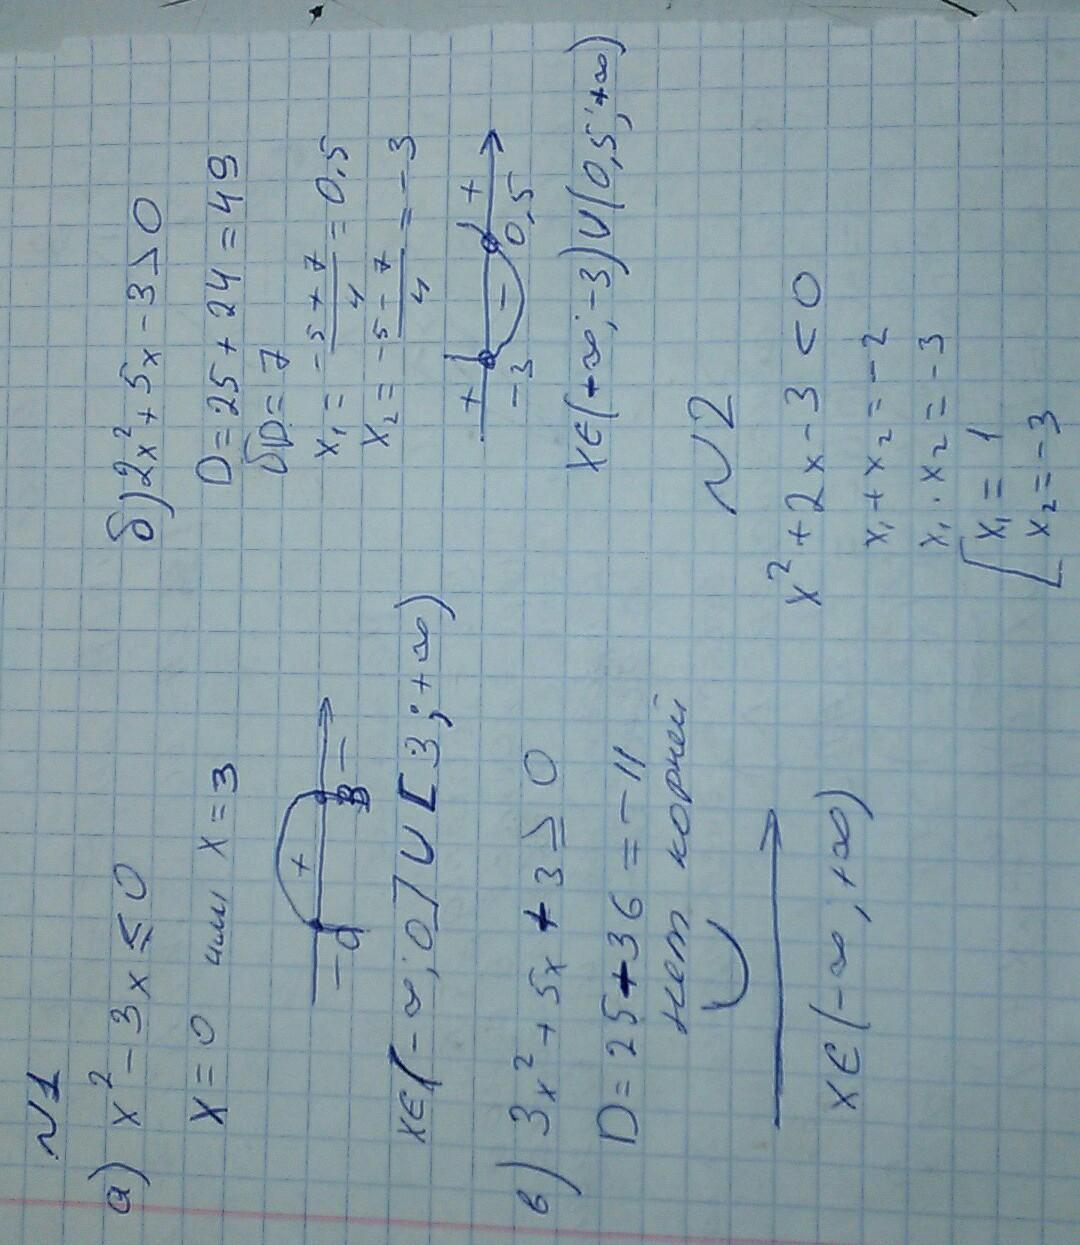 N1
а) x² - 3x ≤ 0
x = 0 или x = 3
- 0 + 3 -
x∈(-∞; 0] ∪ [3; +∞)
в) 3x² + 5x + 3 ≥ 0
D = 25 - 36 = -11
нет корней
x∈(-∞, +∞)
б) 2x² + 5x - 3 > 0
D = 25 + 24 = 49
√D = 7
x₁ = (-5 + 7)/4 = 0,5
x₂ = (-5 - 7)/4 = -3
+ -3 - 0,5 +
x∈(+∞; -3) ∪ (0,5; +∞)
N2
x² + 2x - 3 < 0
x₁ + x₂ = -2
x₁ · x₂ = -3
[x₁ = 1
x₂ = -3